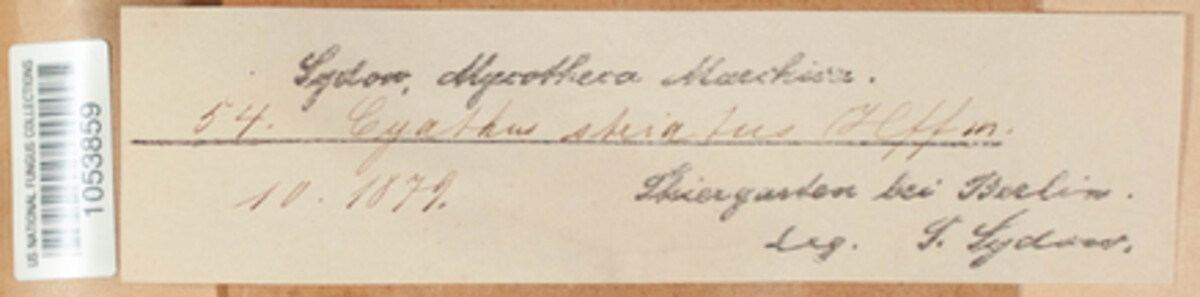 US NATIONAL FUNGUS COLLECTIONS
1053859
Sydow, Mycotheca Marchica.
54. Cyathus striatus Hffm.
10. 1879.
Thiergarten bei Berlin.
leg. P. Sydow.